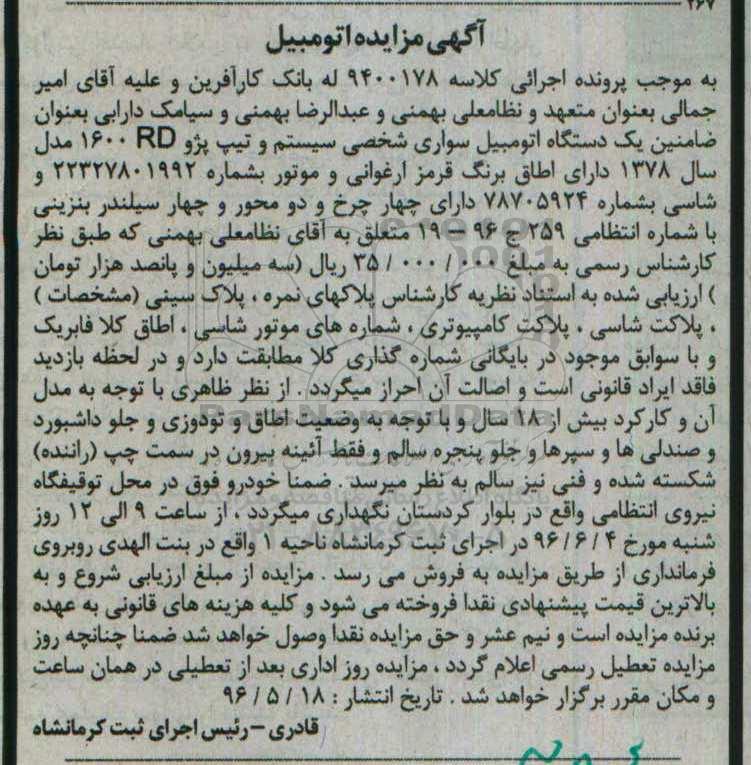 ۲۶۷
آگهی مزایده اتومبیل
به موجب پرونده اجرائی کلاسه ۹۴۰۰۱۷۸ له بانک کارآفرین و علیه آقای امیر
جمالی بعنوان متعهد و نظامعلی بهمنی و عبدالرضا بهمنی و سیامک دارابی بعنوان
ضامنین یک دستگاه اتومبیل سواری شخصی سیستم و تیپ پژو RD ۱۶۰۰ مدل
سال ۱۳۷۸ دارای اطاق برنگ قرمز ارغوانی و موتور بشماره ۲۲۳۲۷۸۰۱۹۹۲ و
شاسی بشماره ۷۸۷۰۵۹۲۴ دارای چهار چرخ و دو محور و چهار سیلندر بنزینی
با شماره انتظامی ۲۵۹ ج ۹۶ – ۱۹ متعلق به آقای نظامعلی بهمنی که طبق نظر
کارشناس رسمی به مبلغ ۰۰۰ / ۰۰۰ / ۳۵ ریال (سه میلیون و پانصد هزار تومان
) ارزیابی شده به استناد نظریه کارشناس پلاکهای نمره ، پلاک سینی (مشخصات )
، پلاکت شاسی ، پلاکت کامپیوتری ، شماره های موتور شاسی ، اطاق کلا فابریک
و با سوابق موجود در بایگانی شماره گذاری کلا مطابقت دارد و در لحظه بازدید
فاقد ایراد قانونی است و اصالت آن احراز میگردد . از نظر ظاهری با توجه به مدل
آن و کارکرد بیش از ۱۸ سال و با توجه به وضعیت اطاق و تودوزی و جلو داشبورد
و صندلی ها و سپرها و جلو پنجره سالم و فقط آئینه بیرون در سمت چپ (راننده)
شکسته شده و فنی نیز سالم به نظر میرسد . ضمنا خودرو فوق در محل توقیفگاه
نیروی انتظامی واقع در بلوار کردستان نگهداری میگردد ، از ساعت ۹ الی ۱۲ روز
شنبه مورخ ۴ / ۶ / ۹۶ در اجرای ثبت کرمانشاه ناحیه ۱ واقع در بنت الهدی روبروی
فرمانداری از طریق مزایده به فروش می رسد . مزایده از مبلغ ارزیابی شروع و به
بالاترین قیمت پیشنهادی نقدا فروخته می شود و کلیه هزینه های قانونی به عهده
برنده مزایده است و نیم عشر و حق مزایده نقدا وصول خواهد شد ضمنا چنانچه روز
مزایده تعطیل رسمی اعلام گردد ، مزایده روز اداری بعد از تعطیلی در همان ساعت
و مکان مقرر برگزار خواهد شد . تاریخ انتشار : ۱۸ / ۵ / ۹۶
قادری – رئیس اجرای ثبت کرمانشاه
ParsNamadData